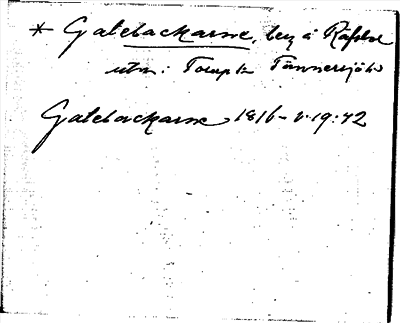 * Galebackarne, beg å Råfslo
utm: Torp k Tännersjö
Galebackarne 1816 - v. 19:42